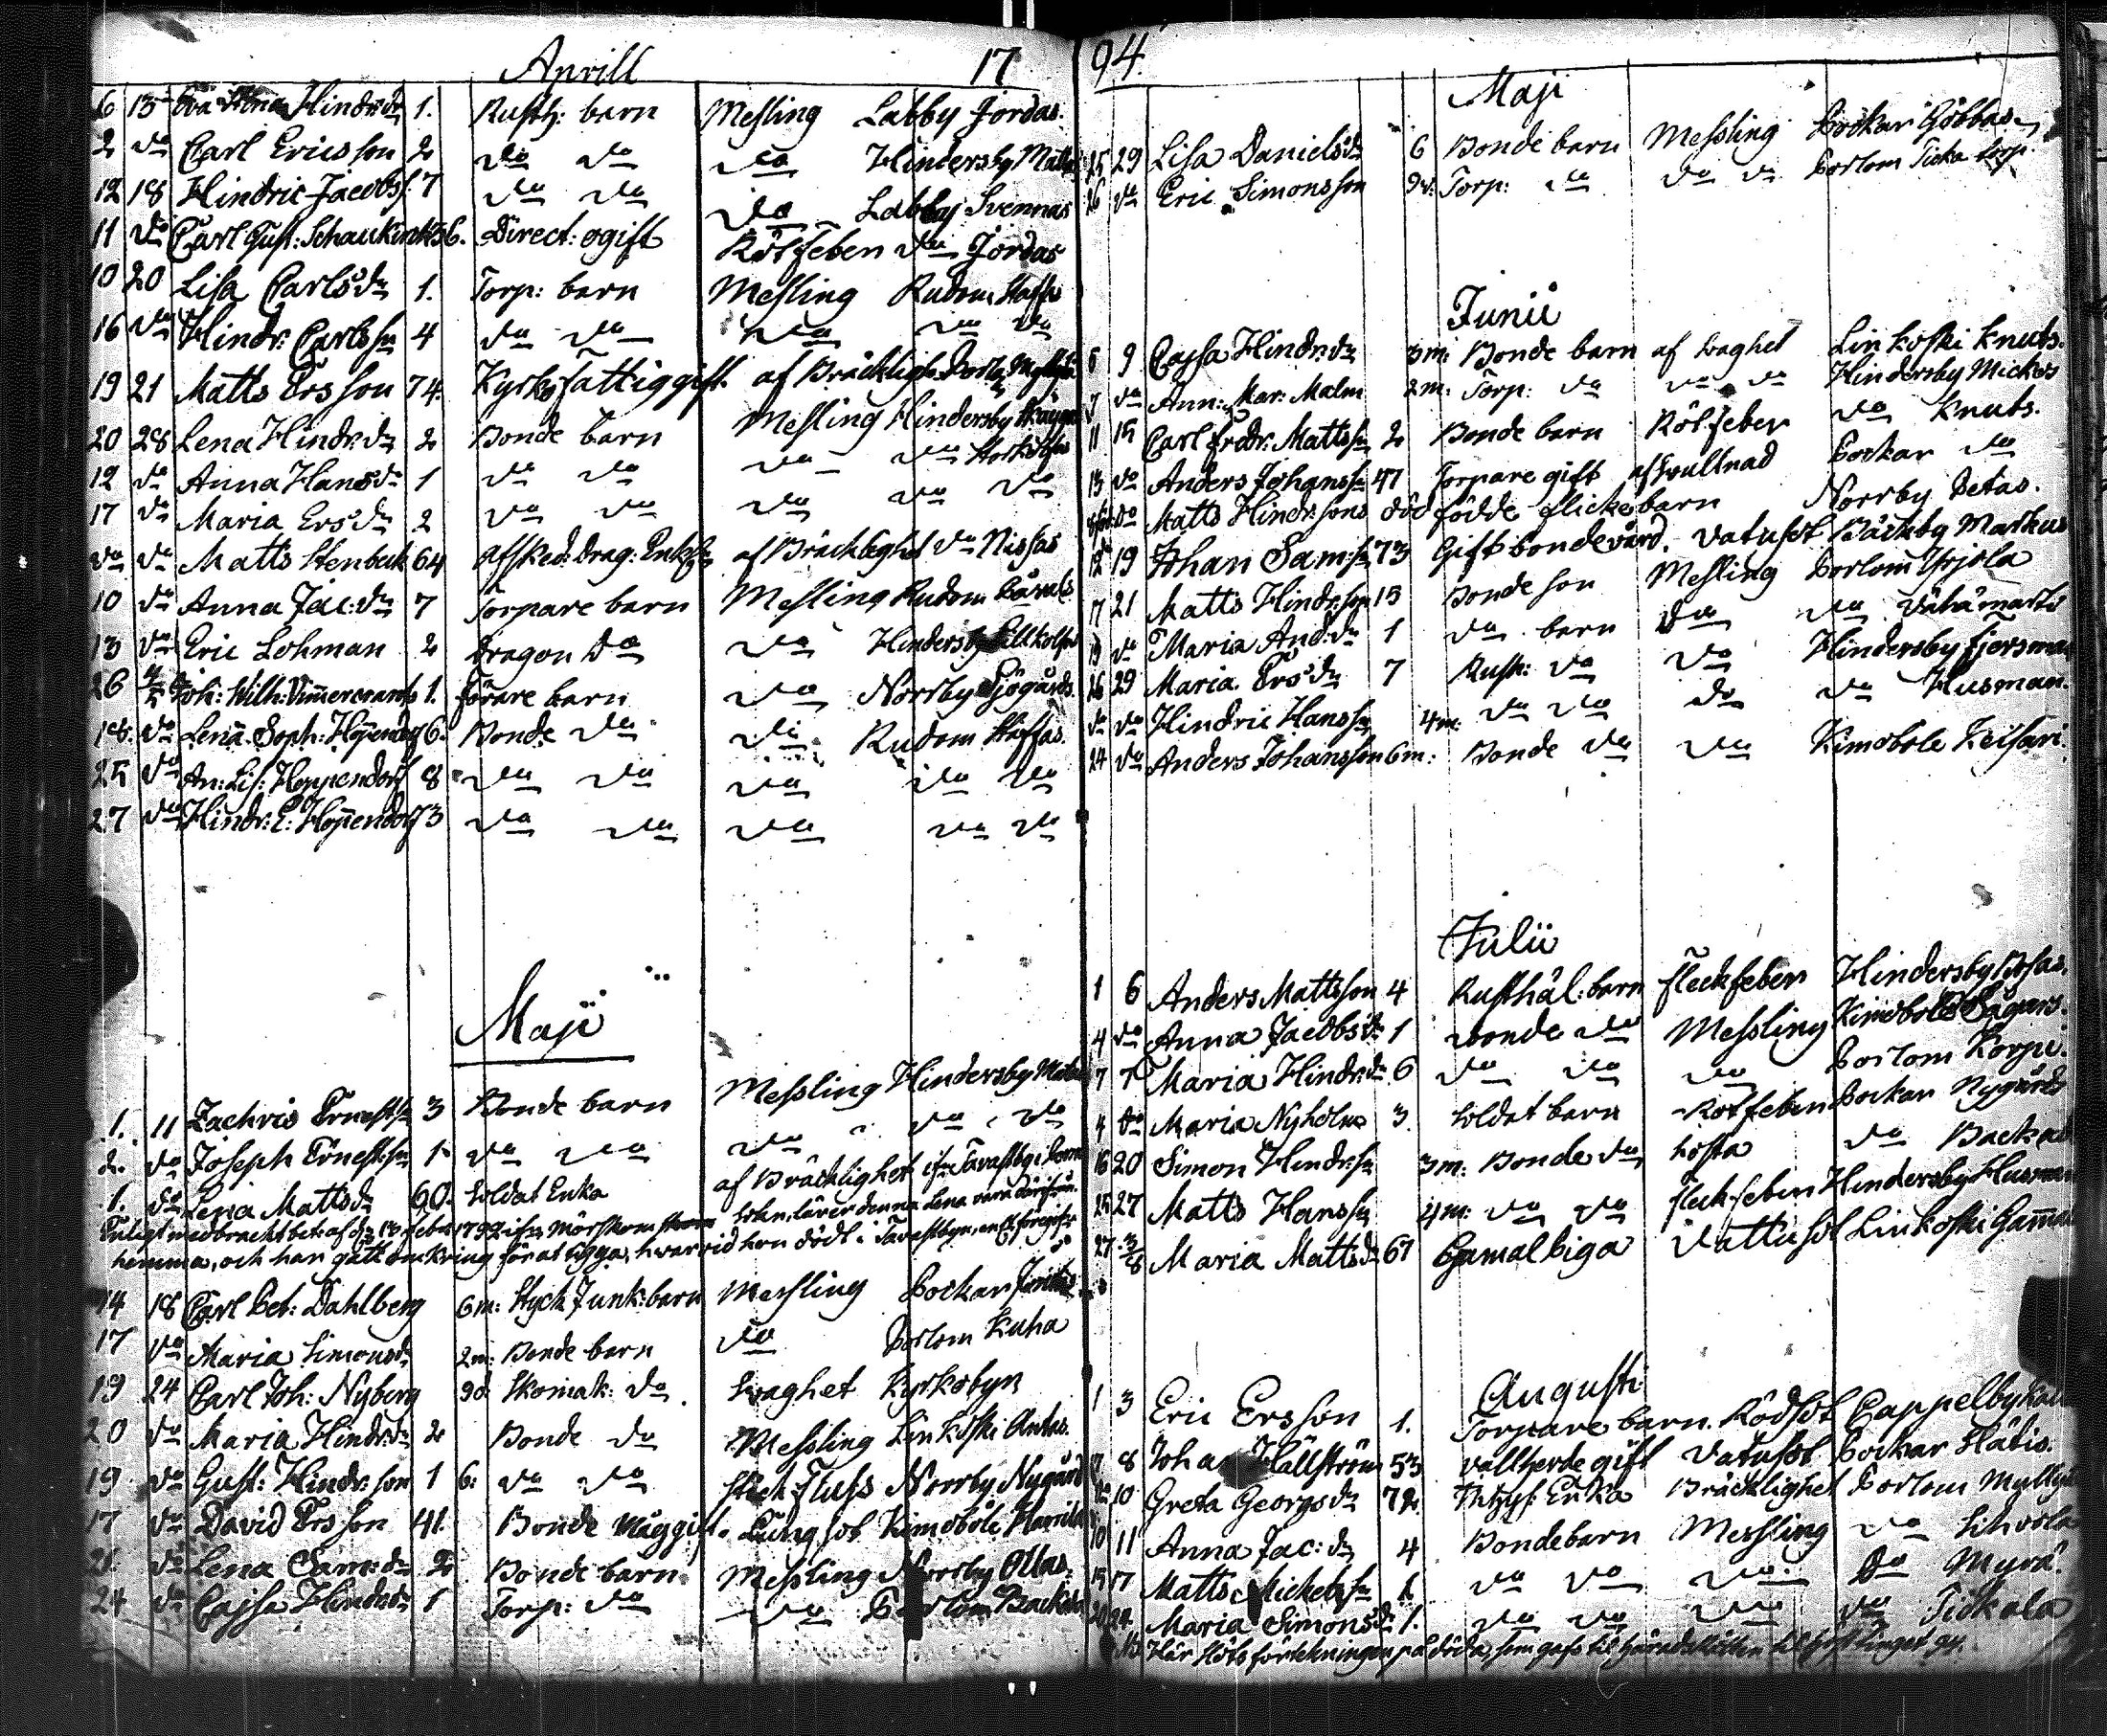 Aprill 17
6 13 Eva Stina Hindr:dr 1. Rusth: barn Messling Labby Jordas.
2 do Carl Ericsson 2 do do do Hindersby Matts
12 18 Hindric Jacobss: 7 do do do Labby Svennas
11 do Carl Gust: Schaukin 56. Direct: ogift Rötfeber do Jordas
10 20 Lisa Carlsdr 1. Torp: barn Messling Rudom Staffas
16 do Hindr: Carlssn 4 do do do do do
19 21 Matts Ersson 74. Kyrkofattig gift. af Bräcklighet
20 28 Lena Hindr:dr 2 Bonde barn Messling Hindersby
12 do Anna Hansdr 1 do do do do
17 do Maria Ersdr 2 do do do do do
do do Matts Stenbeck 64 Afsked: Drag: Enkl: af Bräcklighet do Nissas
10 do Anna Jac:dr 7 Torpare barn Messling Rudom
13 do Eric Lohman 2 Dragon do do Hindersby
26 4/5 Joh: Wilh: 1. Förare barn do Norrby Sjögårds
18. do Lena Soph: Hoppendorf 6. Bonde do do Rudom Staffas.
25 do An: Lis: Hoppendorf 8 do do do do do
27 do Hindr: E: Hoppendorf 3 do do do do do
Maji
1. 11 Zachris Ernestsn 3 Bonde barn Messling Hindersby
2. do Joseph Ernestsn 1 do do do do do
1. do Lena Mattsdr 60. Soldat Enka af Bräcklighet ifr: Tavastby i
Enligt medbracht bet: af d: 18 Febr: 1792 ifr: Mörskom
hemma, och har gått omkring för at tigga, hvarvid hon dödt i Tavastbyn
14 18 Carl Bet: Dahlberg 6m: Styck Junk: barn Messling Bockar
17 do Maria Simonsdr 2m: Bonde barn do Porlom Kuha
19 24 Carl Joh: Nyberg 9d Skomak: do Svaghet Kyrkobyn
20 do Maria Hindr:dr 2 Bonde do Messling Linkoski Antas.
19 do Gust: Hindr:son 1 6: do do Stick Fluss Norrby Nygård
17 do David Ersson 41. Bonde Måg gift. Lungsot Kimoböle
21. do Lena Sam:dr 2 Bonde barn Messling Norrby Ollas.
24 do Cajsa Hindr:dr 1 Torp: do do Porlom Backas
94.
Maji
25 29 Lisa Danielsdr 6 Bonde barn Messling Bockar Göbbas.
26 do Eric Simonsson 9d: Torp: do do do Porlom Ticka torp.
Junii
6 9 Cajsa Hindr:dr 3m: Bonde barn af Svaghet Linkoski Knuts.
7 do Ann: Mar: Malm 2m: Torp: do do do Hindersby Mickos
11 15 Carl Fredr: Mattssn 2 Bonde barn Rötfeber do Knuts.
13 do Anders Johanssn 47 Torpare gift af Svullnad Bockar do
do Matts Hindr:sons död födde flickebarn Norrby Petas.
12 19 Johan Sam:sn 73 Gift bondevärd. Vatusot Bäckby Markus
17 21 Matts Hindr:son 15 Bonde son Messling Porlom Yrjola
19 do Maria And:dr 1 do barn do do
26 29 Maria Ersdr 7 Rusth: do do Hindersby
do do Hindric Hanssn 4m: do do do do Husman.
24 do Anders Johansson 6m: Bonde do do Kimobole Keisari.
Julii
1 6 Anders Mattsson 4 Rusthål: barn Fleckfeber Hindersby
4 do Anna Jacobsdr 1 Bonde do Messling Kimobole
7 7 Maria Hindr:dr 6 do do do Porlom Korpi.
4 do Maria Nyholm 3. Soldat barn Rötfeber Bockar Nygårds
16 20 Simon Hindr:sn 3m: Bonde do hosta do Backas
25 27 Matts Hanssn 4m: do do Fleckfeber Hindersby Husman
27 3/8 Maria Mattsdr 67 Gamal Piga Vattusot Linkoski
Augusti
1 3 Eric Ersson 1. Torpare barn. Rödsot Cappelby
7 8 Johan Hällström 53 Vallherde gift Vatusot Bockar Hätis.
do 10 Greta Georgsdr 72. Enka Bräcklighet Porlom
10 11 Anna Jac:dr 4 Bondebarn Messling do Sihvola
15 17 Matts Michelssn 1 do do do do Myrä.
20 Maria Simonsdr 1. do do do do Tickala
NB Här slöts förtekningen på döda, som gafs til häradsrätten til höst Tinget 94.